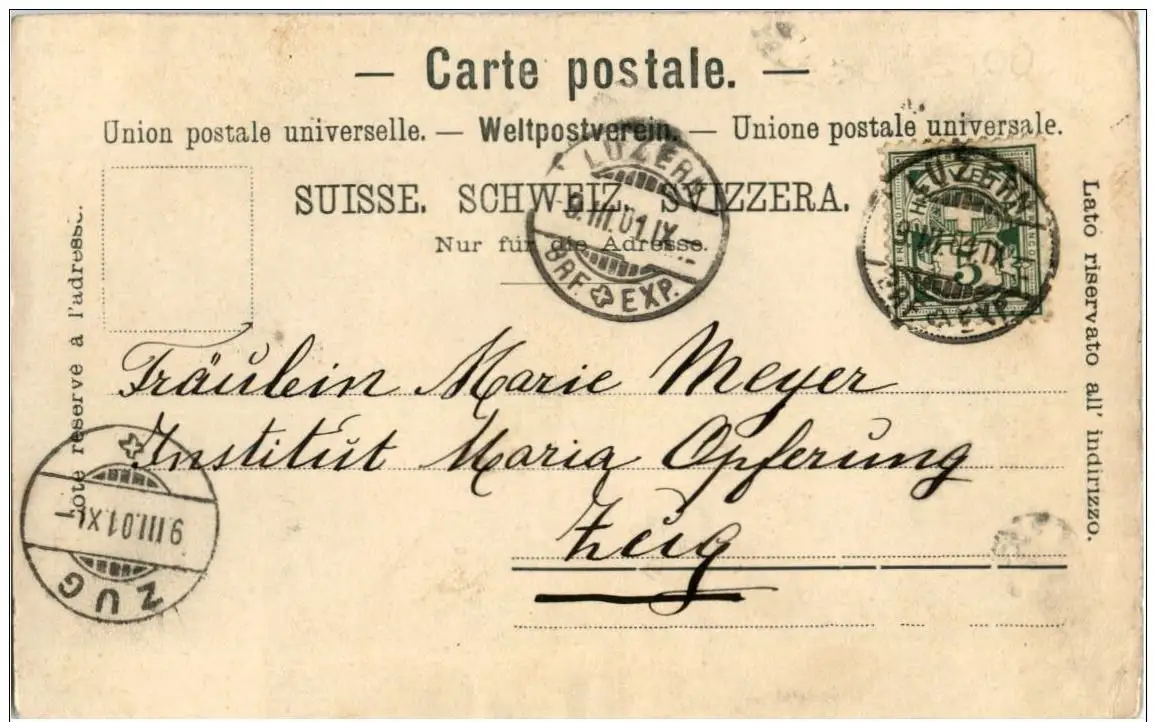 — Carte postale. —
Union postale universelle. — Weltpostverein. — Unione postale universale.
SUISSE. SCHWEIZ. SVIZZERA.
Nur für die Adresse.
Côté réservé à l'adresse.
Lato riservato all' indirizzo.
LUZERN
9.III.01.IX
BRF. EXP.
LUZERN
III.01.IX
BRF. EXP.
5
Fräulein Marie Meyer
Institut Maria Opferung
Zug
9.III.01.XI
ZUG